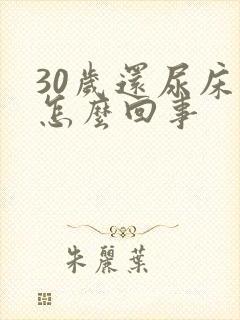 30歲還尿床
怎麼回事
朱麗葉